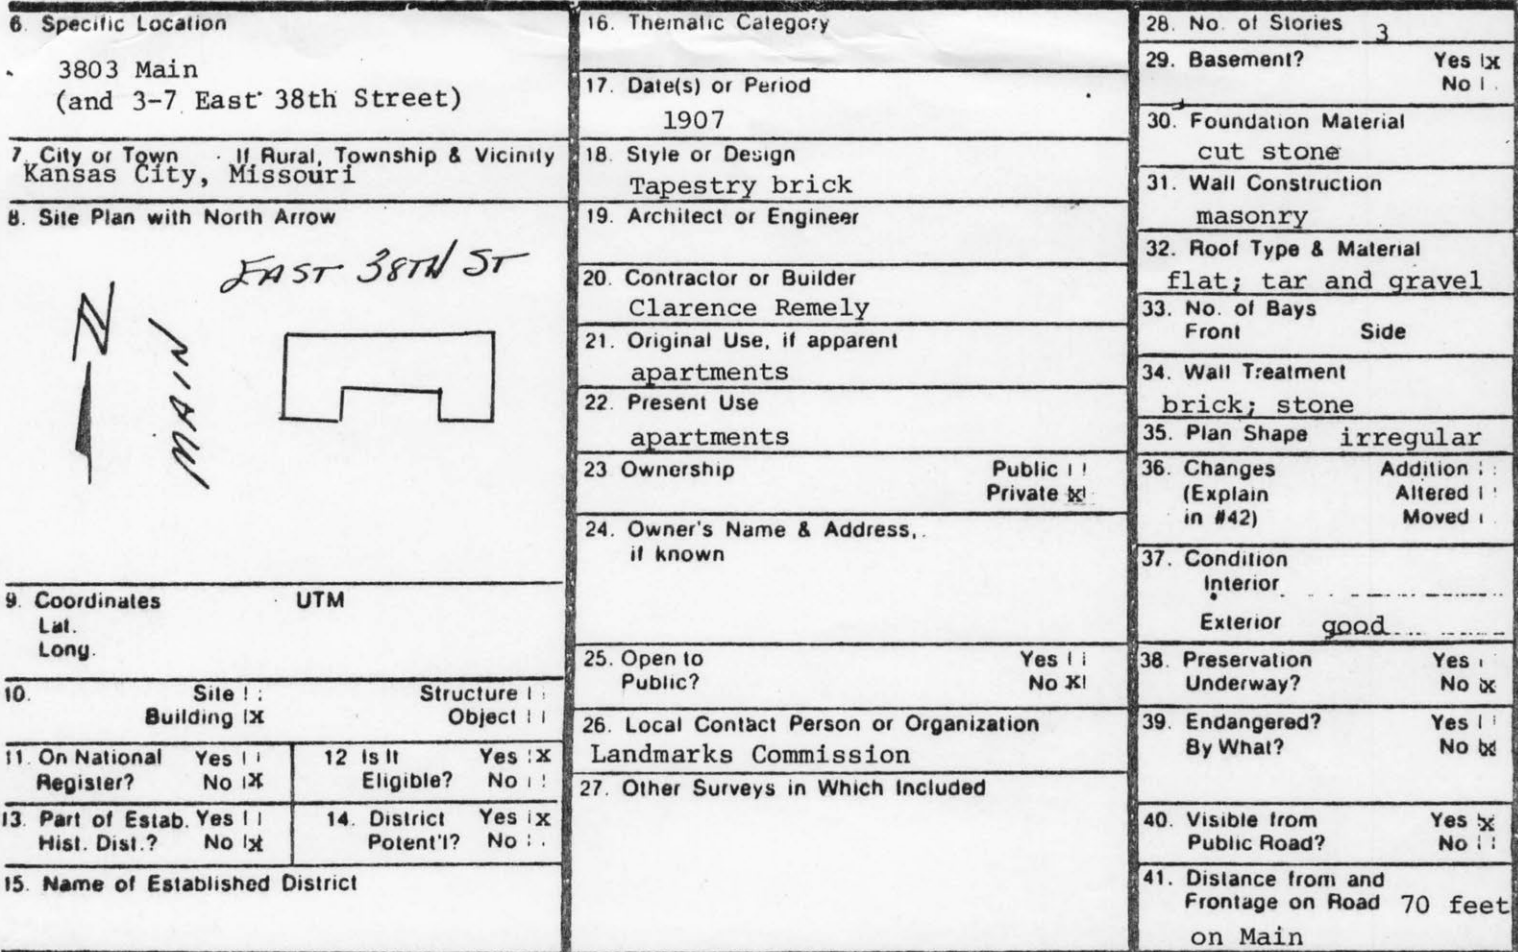 6. Specific Location
3803 Main
(and 3-7 East 38th Street)
7. City or Town If Rural, Township & Vicinity
Kansas City, Missouri
8. Site Plan with North Arrow
EAST 38TH ST
N
MAIN
9. Coordinates UTM
Lat.
Long.
10. Site Structure
Building X Object
11. On National Register? Yes No X
12 Is It Eligible? Yes X No
13. Part of Estab. Hist. Dist.? Yes No X
14. District Potent'l? Yes X No
15. Name of Established District
16. Thematic Category
17. Date(s) or Period
1907
18. Style or Design
Tapestry brick
19. Architect or Engineer
20. Contractor or Builder
Clarence Remely
21. Original Use, if apparent
apartments
22. Present Use
apartments
23 Ownership Public
Private X
24. Owner's Name & Address,
if known
25. Open to Yes
Public? No X
26. Local Contact Person or Organization
Landmarks Commission
27. Other Surveys in Which Included
28. No. of Stories 3
29. Basement? Yes X
No
30. Foundation Material
cut stone
31. Wall Construction
masonry
32. Roof Type & Material
flat; tar and gravel
33. No. of Bays
Front Side
34. Wall Treatment
brick; stone
35. Plan Shape irregular
36. Changes Addition
(Explain Altered
in #42) Moved
37. Condition
Interior
Exterior good
38. Preservation Yes
Underway? No X
39. Endangered? Yes
By What? No X
40. Visible from Yes X
Public Road? No
41. Distance from and
Frontage on Road 70 feet
on Main